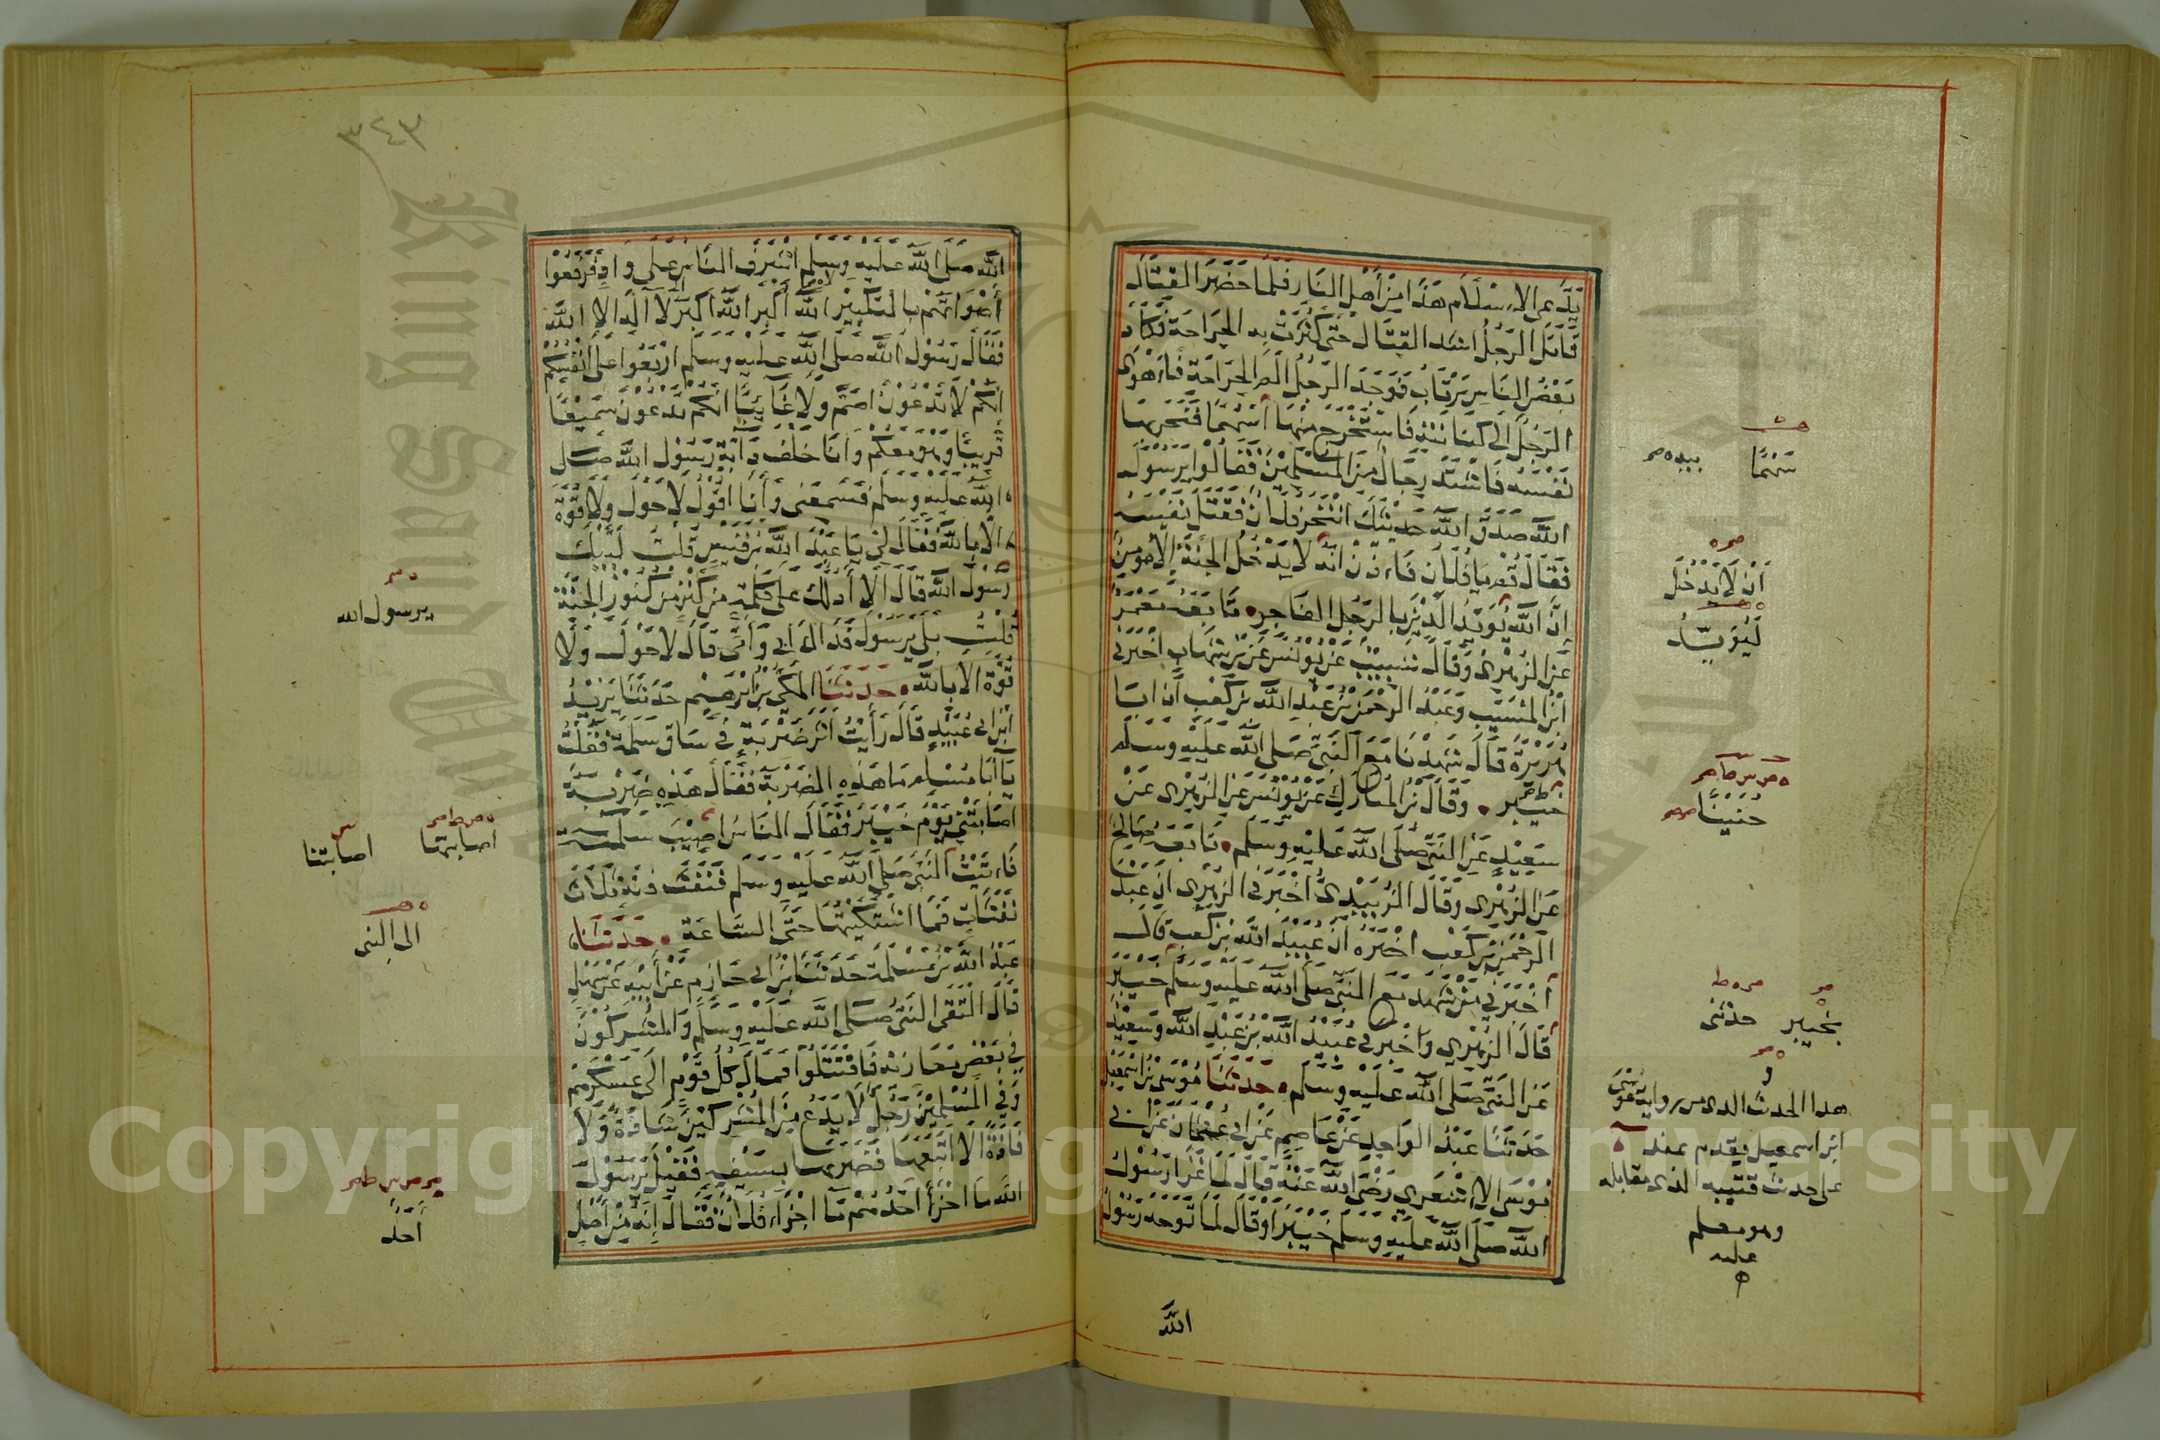 يدعى الاسلام هذا من أهل النار فلما حضر القتال
قاتل الرجل اشد القتال حتى كثرت به الجراحة فكاد
بعض الناس يرتاب فوجد الرجل الم الجراحة فاهوى
الرجل الى كنانته فاستخرج منها أسهما فنحر بها
نفسه فاشتد رجال من المسلمين فقالوا يرسول
الله صدق الله حديثك انتحر فلان فقتل نفسه
فقال قم يا فلان فاذن انه لا يدخل الجنة إلا مؤمن
ان الله يؤيد الدين بالرجل الفاجر تابعه معمر
عن الزهري وقال شبيب عن يونس عن بن شهاب اخبرني
ابن المسيب وعبد الرحمن بن عبد الله بن كعب أن ابا
هريرة قال شهدنا مع النبي صلى الله عليه وسلم
خيبر وقال بن المبارك عن يونس عن الزهري عن
سعيد عن النبي صلى الله عليه وسلم تابعه صالح
عن الزهري وقال الزبيدي أخبرني الزهري ان عبد
الرحمن بن كعب اخبره أن عبيد الله بن كعب قال
أخبرني من شهد مع النبي صلى الله عليه وسلم خيبر
قال الزهري واخبرني عبيد الله بن عبد الله وسعيد
عن النبي صلى الله عليه وسلم حدثنا موسى بن اسمعيل
حدثنا عبد الواحد عن عاصم عن ابي عثمان عن ابي
موسى الاشعري رضى الله عنه قال لما غزا رسول
الله صلى الله عليه وسلم خيبر أو قال لما توجه رسول
الله
سهما
بيده
أن لا يدخل
ليؤيد
حنينا
بخيبر حدثني
هذا الحديث الذي من رواية موسى
ابن اسمعيل يقدم عند
على حديث قتيبه الذي مقابله
وهو معلم
عليه
٣٤٣
الله صلى الله عليه وسلم اشرف الناس على واد فرفعوا
أصواتهم بالتكبير الله أكبر الله اكبر لا اله الا الله
فقال رسول الله صلى الله عليه وسلم اربعوا على أنفسكم
انكم لا تدعون اصم ولا غائبا انكم تدعون سميعا
قريبا وهو معكم وانا خلف دابة رسول الله صلى
الله عليه وسلم فسمعني وأنا اقول لا حول ولا قوة
الا بالله فقال لي يا عبد الله بن قيس قلت لبيك
رسول الله قال الا أدلك على كلمة من كنز من كنوز الجنة
قلت بلى يرسول فداك ابي وأمي قال لا حول ولا
قوة الا بالله حدثنا المكي بن ابرهيم حدثنا يزيد
ابن ابي عبيد قال رأيت اثر ضربة في ساق سلمة فقلت
يا أبا مسلم ما هذه الضربة فقال هذه ضربة
اصابتني يوم خيبر فقال الناس اصيب سلمة
فاتيت النبي صلى الله عليه وسلم فنفث فيه ثلاث
نفثات فما اشتكيتها حتى الساعة حدثنا
عبد الله بن مسلمة حدثنا بن ابي حازم عن أبيه عن سهل
قال التقى النبي صلى الله عليه وسلم والمشركون
في بعض مغازيه فاقتتلوا فمال كل قوم الى عسكرهم
وفي المسلمين رجل لا يدع من المشركين شاذة ولا
فاذة الا اتبعها فضربها بسيفه فقيل يرسول
الله ما اجزأ احد منهم ما اجزاء فلان فقال إنه من أهل
يرسول الله
اصابتها
اصابتنا
الى النبي
أحد
Copyright © King Saud University